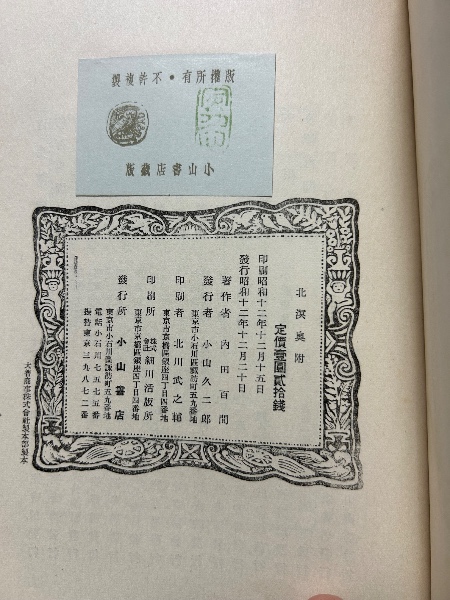 版權所有・不許複製
小山書店藏版
北溟奥附
定價壹圓貳拾錢
印刷昭和十二年十二月十五日
發行昭和十二年十二月二十日
著作者 内田百間
東京市小石川區諏訪町五九番地
發行者 小山久二郎
東京市京橋區銀座四丁目四番地
印刷者 北川武之輔
東京市京橋區銀座四丁目四番地
印刷所 株式會社細川活版所
東京市小石川區諏訪町五九番地
發行所 小山書店
電話小石川七五七五番
振替東京三九八七二番
大倉商店株式會社製本部製本